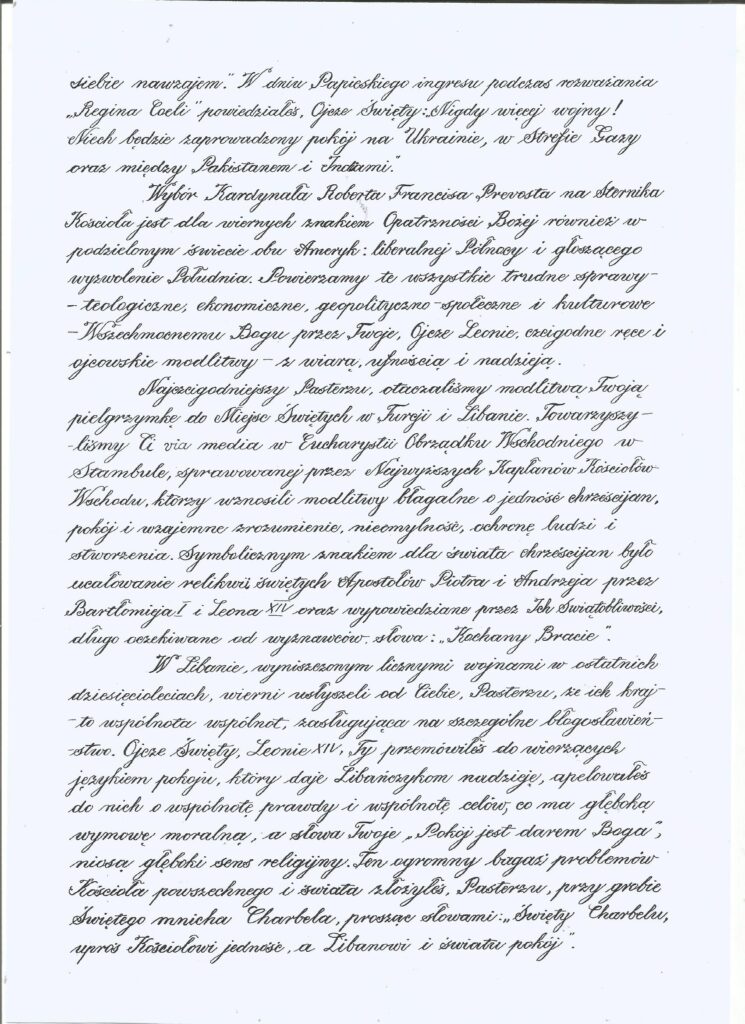 siebie nawzajem". W dniu Papieskiego ingresu podczas rozważania
„Regina Coeli" powiedziałeś, Ojcze Święty: „Nigdy więcej wojny!
Niech będzie zaprowadzony pokój na Ukrainie, w Strefie Gazy
oraz między Pakistanem i Indiami".
Wybór Kardynała Roberta Francisa Prevosta na Sternika
Kościoła jest dla wiernych znakiem Opatrzności Bożej również w
podzielonym świecie obu Ameryk: liberalnej Północy i głoszącego
wyzwolenie Południa. Powierzamy te wszystkie trudne sprawy-
-teologiczne, ekonomiczne, geopolityczno-społeczne i kulturowe
-Wszechmocnemu Bogu przez Twoje, Ojcze Leonie, czcigodne ręce i
ojcowskie modlitwy - z wiarą, ufnością i nadzieją.
Najczcigodniejszy Pasterzu, otaczaliśmy modlitwą Twoją
pielgrzymkę do Miejsc Świętych w Turcji i Libanie. Towarzyszy-
-liśmy Ci via media w Eucharystii Obrządku Wschodniego w
Stambule, sprawowanej przez Najwyższych Kapłanów Kościołów
Wschodu, którzy wznosili modlitwy błagalne o jedność chrześcijan,
pokój i wzajemne zrozumienie, nieomylność, ochronę ludzi i
stworzenia. Symbolicznym znakiem dla świata chrześcijan było
ucałowanie relikwii świętych Apostołów Piotra i Andrzeja przez
Bartłomieja I i Leona XIV oraz wypowiedziane przez Ich Świątobliwości,
długo oczekiwane od wyznawców, słowa: „Kochany Bracie".
W Libanie, wyniszczonym licznymi wojnami w ostatnich
dziesięcioleciach, wierni usłyszeli od Ciebie, Pasterzu, że ich kraj-
-to wspólnota wspólnot, zasługująca na szczególne błogosławień-
-stwo. Ojcze Święty, Leonie XIV, Ty przemówiłeś do wierzących
językiem pokoju, który daje Libańczykom nadzieję, apelowałeś
do nich o wspólnotę prawdy i wspólnotę celów, co ma głęboką
wymowę moralną, a słowa Twoje „Pokój jest darem Boga",
niosą głęboki sens religijny. Ten ogromny bagaż problemów
Kościoła powszechnego i świata złożyłeś, Pasterzu, przy grobie
Świętego mnicha Charbela, prosząc słowami: „Święty Charbelu,
uproś Kościołowi jedność, a Libanowi i światu pokój".